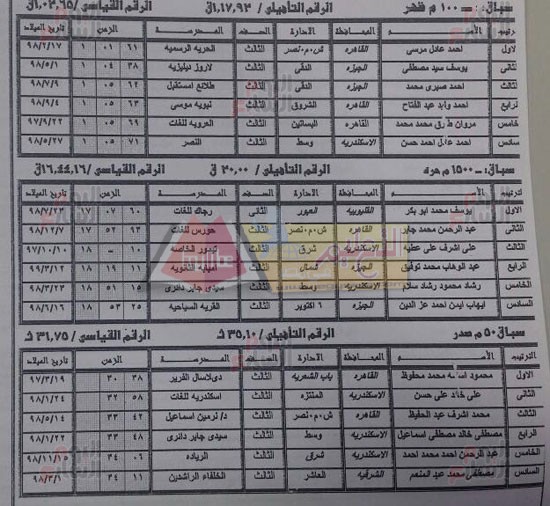 سباق: ــ ١٠٠ م ظهر الرقم التأهيلى / ١,١٧,٩٣ق الرقم القياسى /١,٠٣,٦٥ق
ترتيبه الأســـم المحافظة الادارة الصف المدرســة الزمن تاريخ الميلاد
لاول احمد عادل مرسى القاهره ش.م.نصر الثالث الحريه الرسميه ٦١ ٠١ ١ ٩٨/٢/١٧
ثانى يوسف سيد مصطفى الجيزه الدقى الثالث لاروز ديليزيه ٣٨ ٠٤ ١ ٩٨/٥/١
ثالث احمد صبرى محمد الجيزه الدقى الثالث طلائع المستقبل ٦٢ ٠٥ ١ ٩٨/٧/٩
رابع احمد وليد عبد الفتاح القاهره الشروق الثالث نبويه موسى ٦٣ ٠٥ ١ ٩٨/٩/٤
خامس مروان طارق محمد محمد القاهره البساتين الثالث العروبه للغات ٦٩ ٠٥ ١ ٩٧/٩/٢٢
سادس احمد عادل احمد حسن الاسكندريه وسط الثالث النصر ٧١ ٠٥ ١ ٩٨/٥/٢٧
سباق: ــ ١٥٠٠ م حره الرقم التأهيلى / ٢٠,٠٠ ق الرقم القياسى /١٦,٤٤,١٦ق
الترتيب الأســـم المحافظة الادارة الصف المدرســة الزمن تاريخ الميلاد
الاول يوسف محمد ابو بكر القليوبيه العبور الثانى رجاك للغات ٦٠ ٠٧
الثانى عبد الرحمن محمد جابر القاهره ش.م.نصر الثانى حورس للغات ٩٣ ٥٢ ١٧ ٩٨/١٢/٧
الثالث على اشرف على عطيه الاسكندريه شرق الثالث الخاصه ١٠ -- ١٨ ٩٧/١٠/١٠
الرابع عبد الوهاب محمد توفيق الجيزه الثالث الثانويه ١١ ١٩ ١٨ ٩٩/٣/١٢
الخامس رشاد محمود رشاد سلام الاسكندريه وسط الثالث سيدى جابر دائرى ١٥ ٥١ ١٨ ٩٨/٣/٢٣
السادس ايهاب ايمن احمد عز الدين الجيزه ٦ اكتوبر الثالث القريه السياحيه ٢٥ ٥٣ ١٨ ٩٨/٦/١٦
سباق ٥٠ م صدر الرقم التأهيلى / ٣٥,١٠ ث الرقم القياسى / ٣١,٧٥ ث
الترتيب الأســـم المحافظة الادارة الصف المدرســة الزمن تاريخ الميلاد
الاول محمود اسامه محمد محفوظ القاهره باب الشعريه الثالث دى لاسال الفرير ٣٨ ٣٠ ٩٧/٣/١٩
الثانى على خالد على حسن الاسكندريه المنتزه الثالث اسكندريه للغات ٥٨ ٣٢ ٩٨/١/٢٤
الثالث محمد اشرف عبد الحفيظ القاهره ش.م.نصر الثالث د/ نرمين اسماعيل ٤٢ ٣٣ ٩٨/٥/١٤
الرابع مصطفى خالد مصطفى اسماعيل الاسكندريه وسط الثالث سيدى جابر دائرى ٤٨ ٣٣ ٩٨/١/٢٢
الخامس عبد الرحمن احمد محمد احمد الاسكندريه شرق الثالث الرياده ٠٦ ٣٤ ٩٨/١١/١٦
السادس مصطفى محمد عبد المنعم الشرقيه العاشر الثالث الخلفاء الراشدين ١١ ٣٤ ٩٨/٣/١